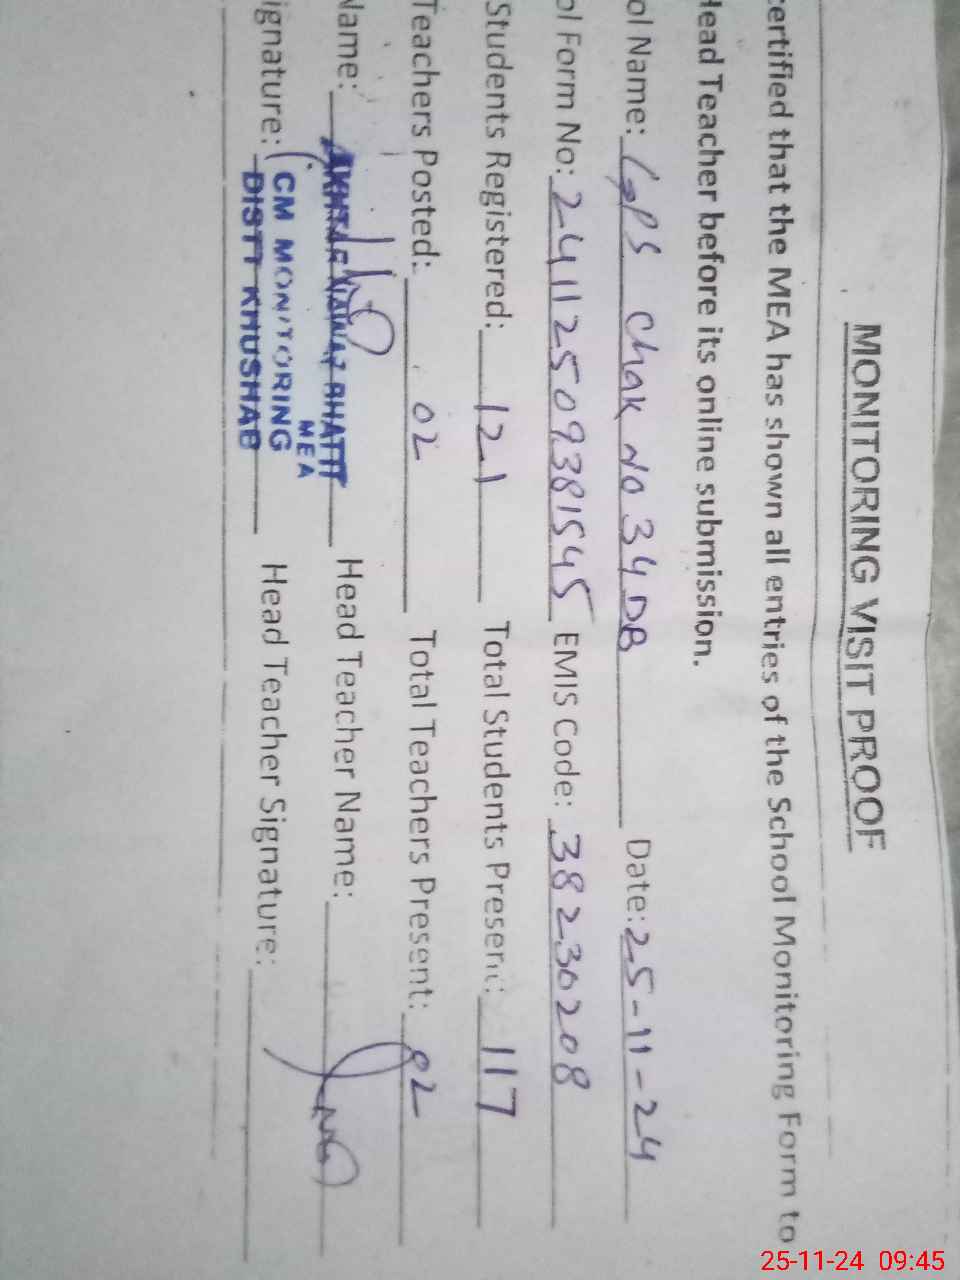 MONITORING VISIT PROOF
ertified that the MEA has shown all entries of the School Monitoring Form to
Head Teacher before its online submission.
ol Name: GPS Chak No 34 DB Date: 25-11-24
ol Form No: 24112509381545 EMIS Code: 38230208
Students Registered: 121 Total Students Present: 117
Teachers Posted: 02 Total Teachers Present: 02
Name: AKHTAR NAWAZ BHATTI Head Teacher Name:
MEA
ignature: CM MONITORING Head Teacher Signature:
DISTT KHUSHAB
25-11-24 09:45